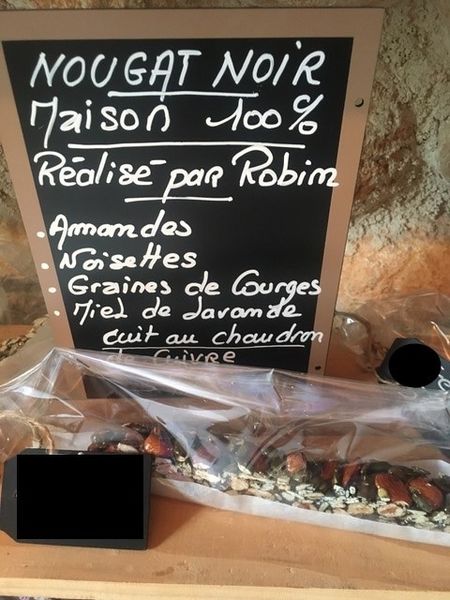 NOUGAT NOIR
Maison 100%
Réalisé par Robin
. Amandes
. Noisettes
. Graines de Courges
. Miel de Lavande
cuit au chaudron
de Cuivre